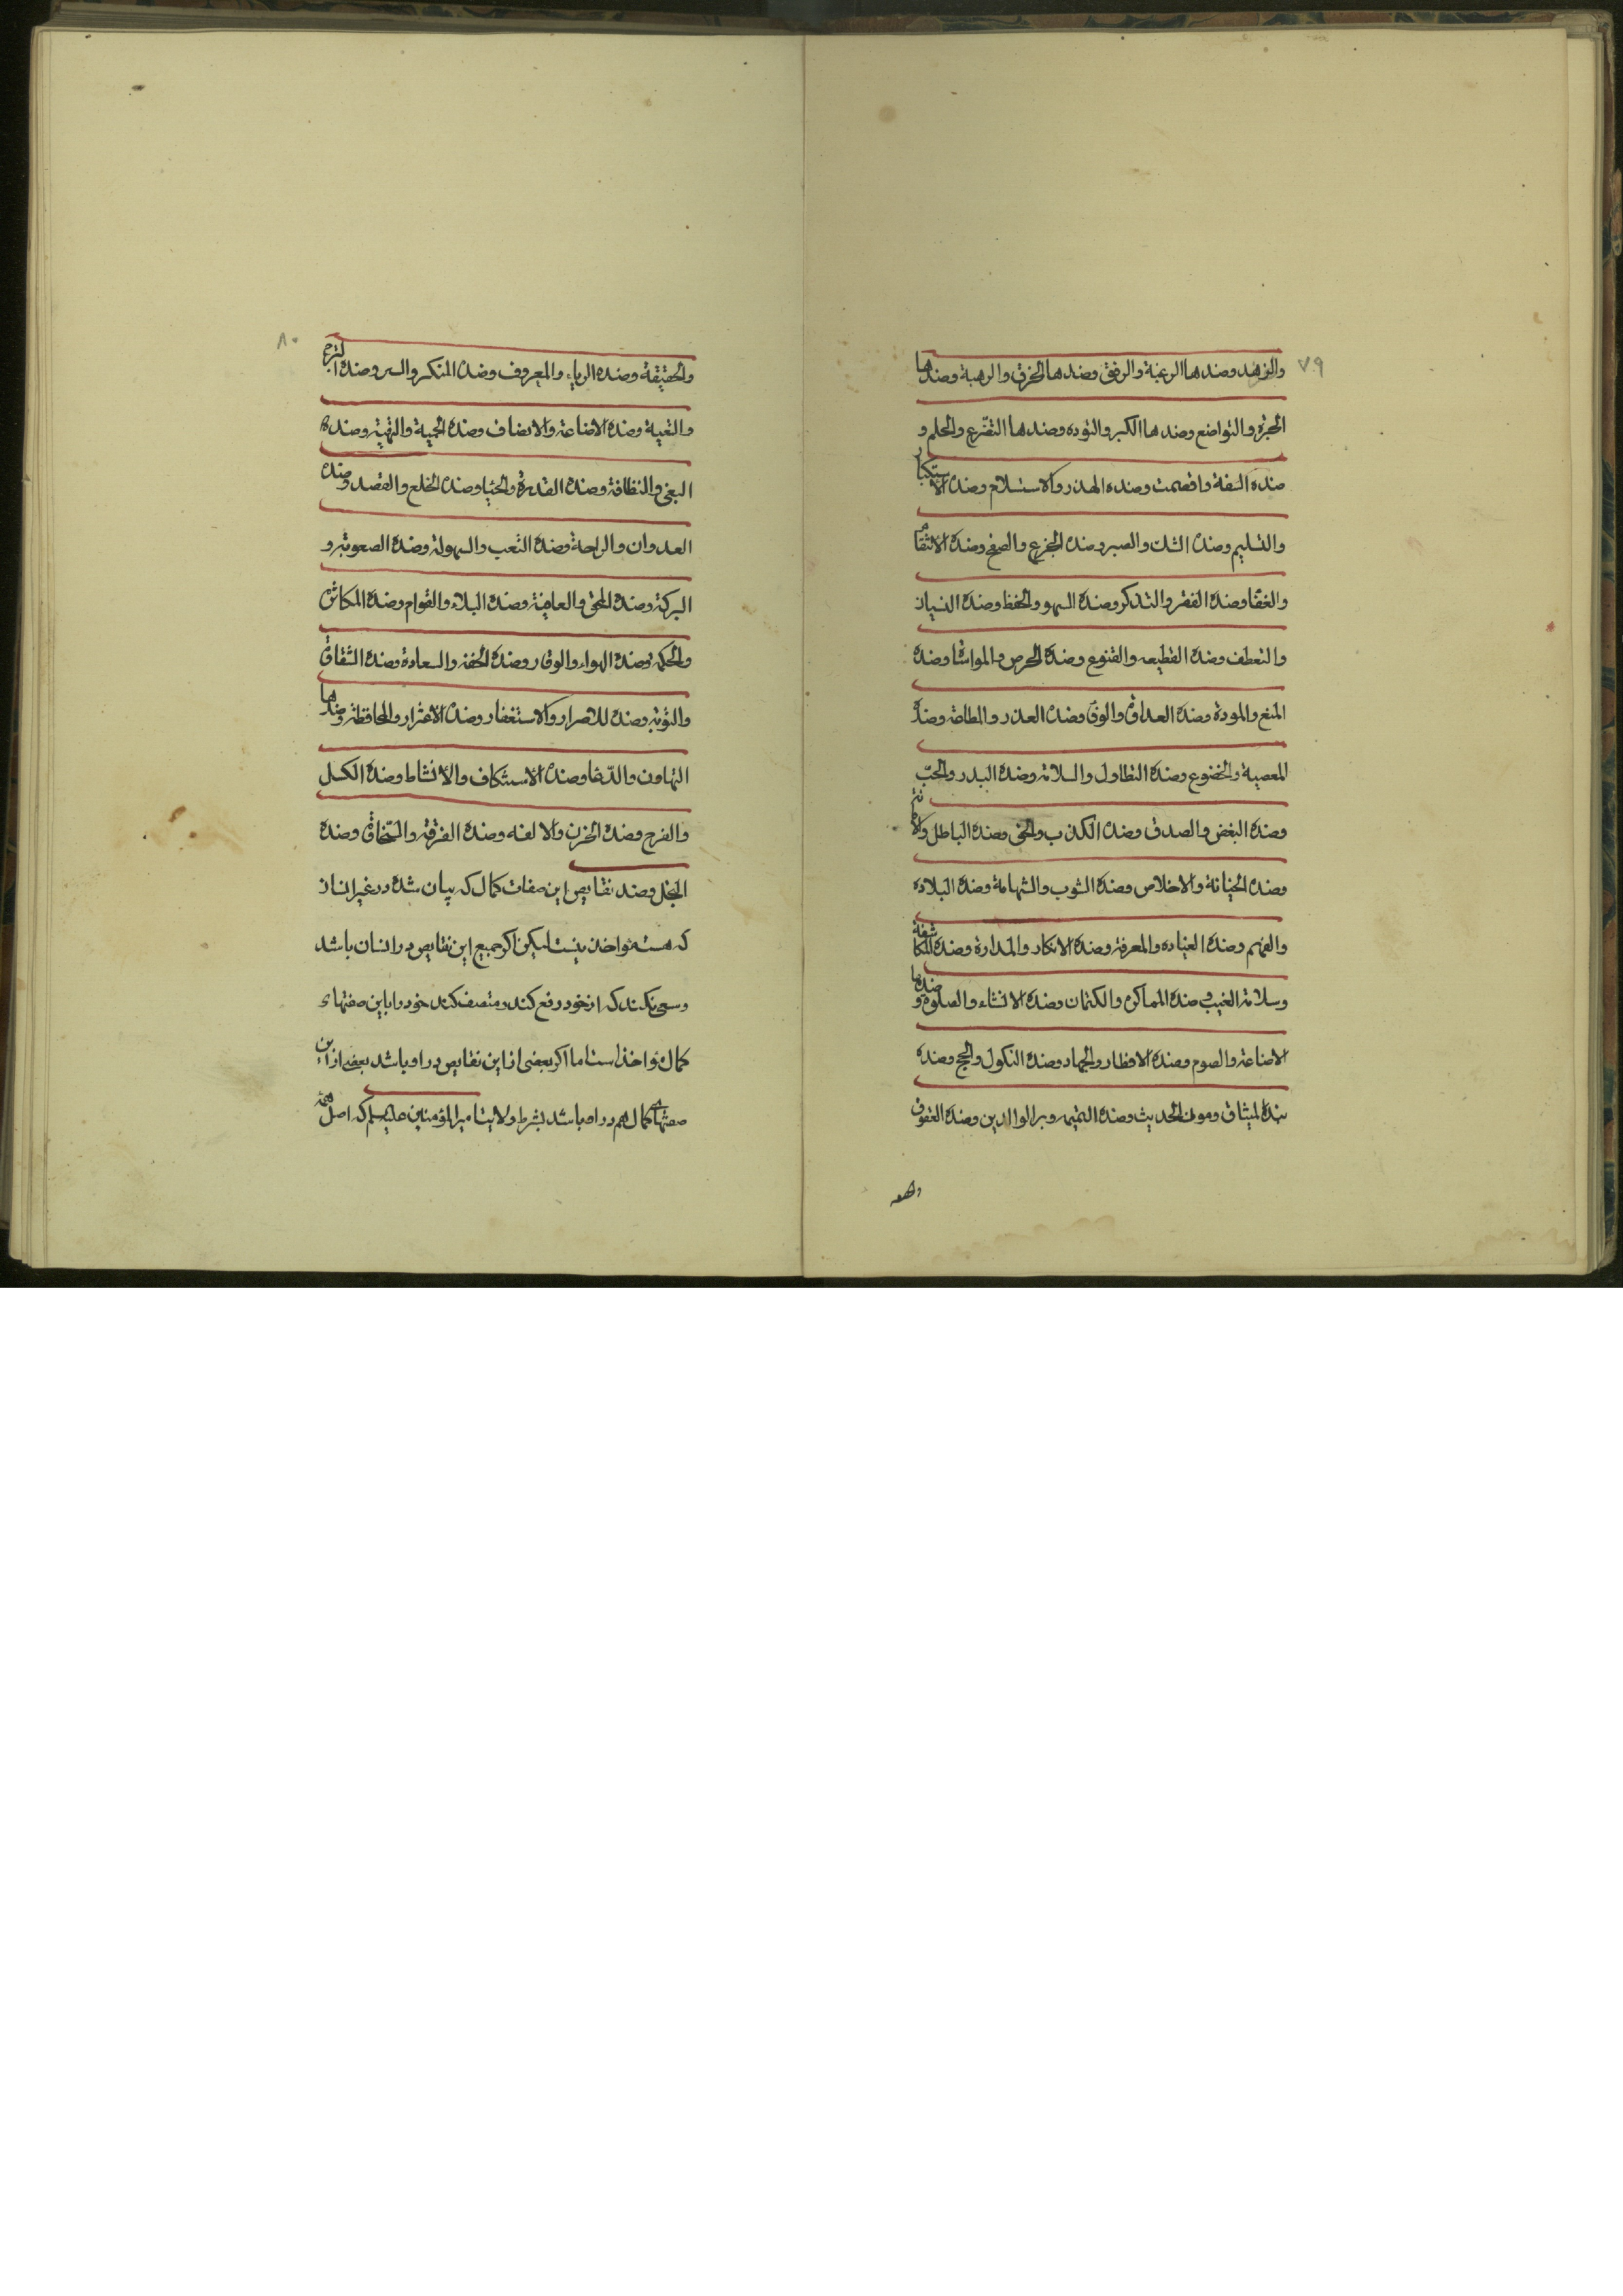 ٧٩
والزهد وضدها الرغبة والرفق وضدها الخرق والرهبة وضدها
الجرة والتواضع وضدها الكبر والتوده وضدها التفرع والحلم و
ضده السفة والصمت وضده الهذر والاستسلام وضده الاستكبار
والتسليم وضده الشك والصبر وضده الجزع والصفح وضده الانتقام
والغنا وضده الفقر والتذكر وضده السهو والحفظ وضده النسيان
والتعطف وضده القطيعه والقنوع وضده الحرص والمواسا وضده
المنع والمودة وضده العداوة والوفا وضده الغدر والطاعة وضده
المعصية والخضوع وضده التطاول والسلامة وضده البدر والحبّ
وضده البغض والصدق وضده الكذب والحق وضده الباطل والأمانة
وضده الخيانة والاخلاص وضده الشوب والشهامة وضده البلاده
والفهم وضده الغباوه والمعرفة وضده الانكار والمدارة وضده المكاشفة
وسلامة الغيب وضده المماكرة والكتمان وضده الافشاء والصلوة وضدها
الاضاعة والصوم وضده الافطار والجهاد وضده النكول والحج وضده
نبذ الميثاق وصون الحديث وضده النميمه وبر الوالدين وضده العقوق
والحقيقة
٨٠
والحقيقة وضده الرياء والمعروف وضده المنكر والستر وضده التبرج
والتقية وضده الاضاعة والانصاف وضده الحمية والتهيئة وضده
البغي والنظافة وضده القذرة والحيا وضده الخلع والقصد وضده
العدوان والراحة وضده التعب والسهولة وضده الصعوبة و
البركة وضده المحق والعافية وضده البلاء والقوام وضده المكاثرة
والحكمة وضده الهواء والوقار وضده الخفة والسعادة وضده الشقاق
والتوبة وضده الاصرار والاستغفار وضده الاغترار والمحافظة وضدها
التهاون والدّعا وضده الاستنكاف والانشاط وضده الكسل
والفرح وضده الحزن والالفه وضده الفرقة والسّخاوة وضده
البخل وضد نقايص اين صفات كمال كه بيان شده در غير انسان
كه هست مؤاخذ نيست ليكن اكر جميع اين نقايص در انسان باشد
وسعى نكند كه از خود رفع كند ومتصف كند خود را باين صفتهاى
كمال مؤاخذ است اما اكر بعضى از اين نقايص در او باشد بعضى از اين
صفتهاى كمال هم در او باشد بشرط ولايت امير المؤمنين عليه السلم كه اصل همه